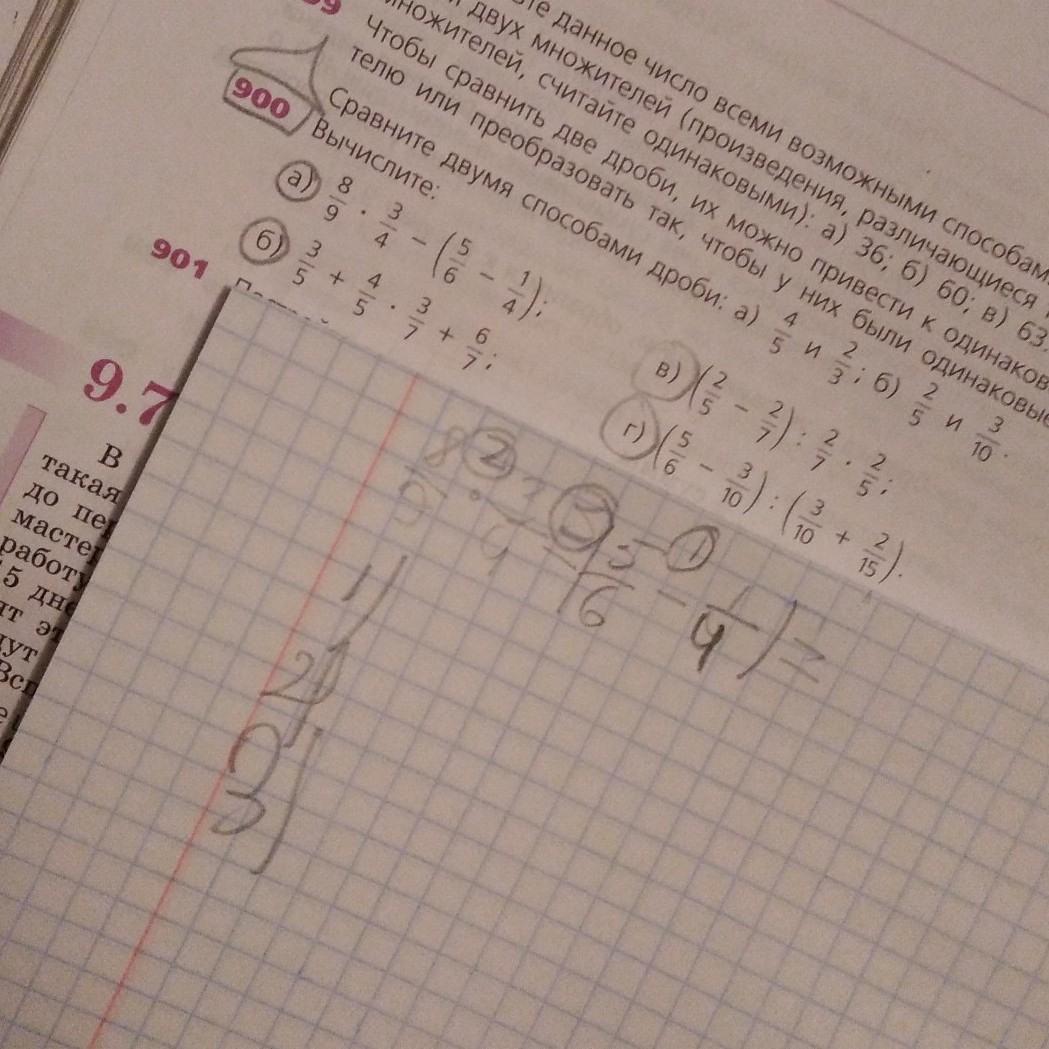 те данное число всеми возможными способам
двух множителей (произведения, различающиеся
ножителей, считайте одинаковыми): а) 36; б) 60; в) 63.
Чтобы сравнить две дроби, их можно привести к одинаков
телю или преобразовать так, чтобы у них были одинаковые
Сравните двумя способами дроби: а) 4/5 и 2/3; б) 2/5 и 3/10.
900 Вычислите:
а) 8/9 · 3/4 − (5/6 − 1/4);
б) 3/5 + 4/5 · 3/7 + 6/7;
в) (2/5 − 2/7) : 2/7 · 2/5;
г) (5/6 − 3/10) : (3/10 + 2/15).
901
9.7
В
такая
до пе
масте
работу
5 дне
ят эт
дут
Всп
2 3 1
8/9 · 3/4 − (5/6 − 1/4) =
1)
2)
3)